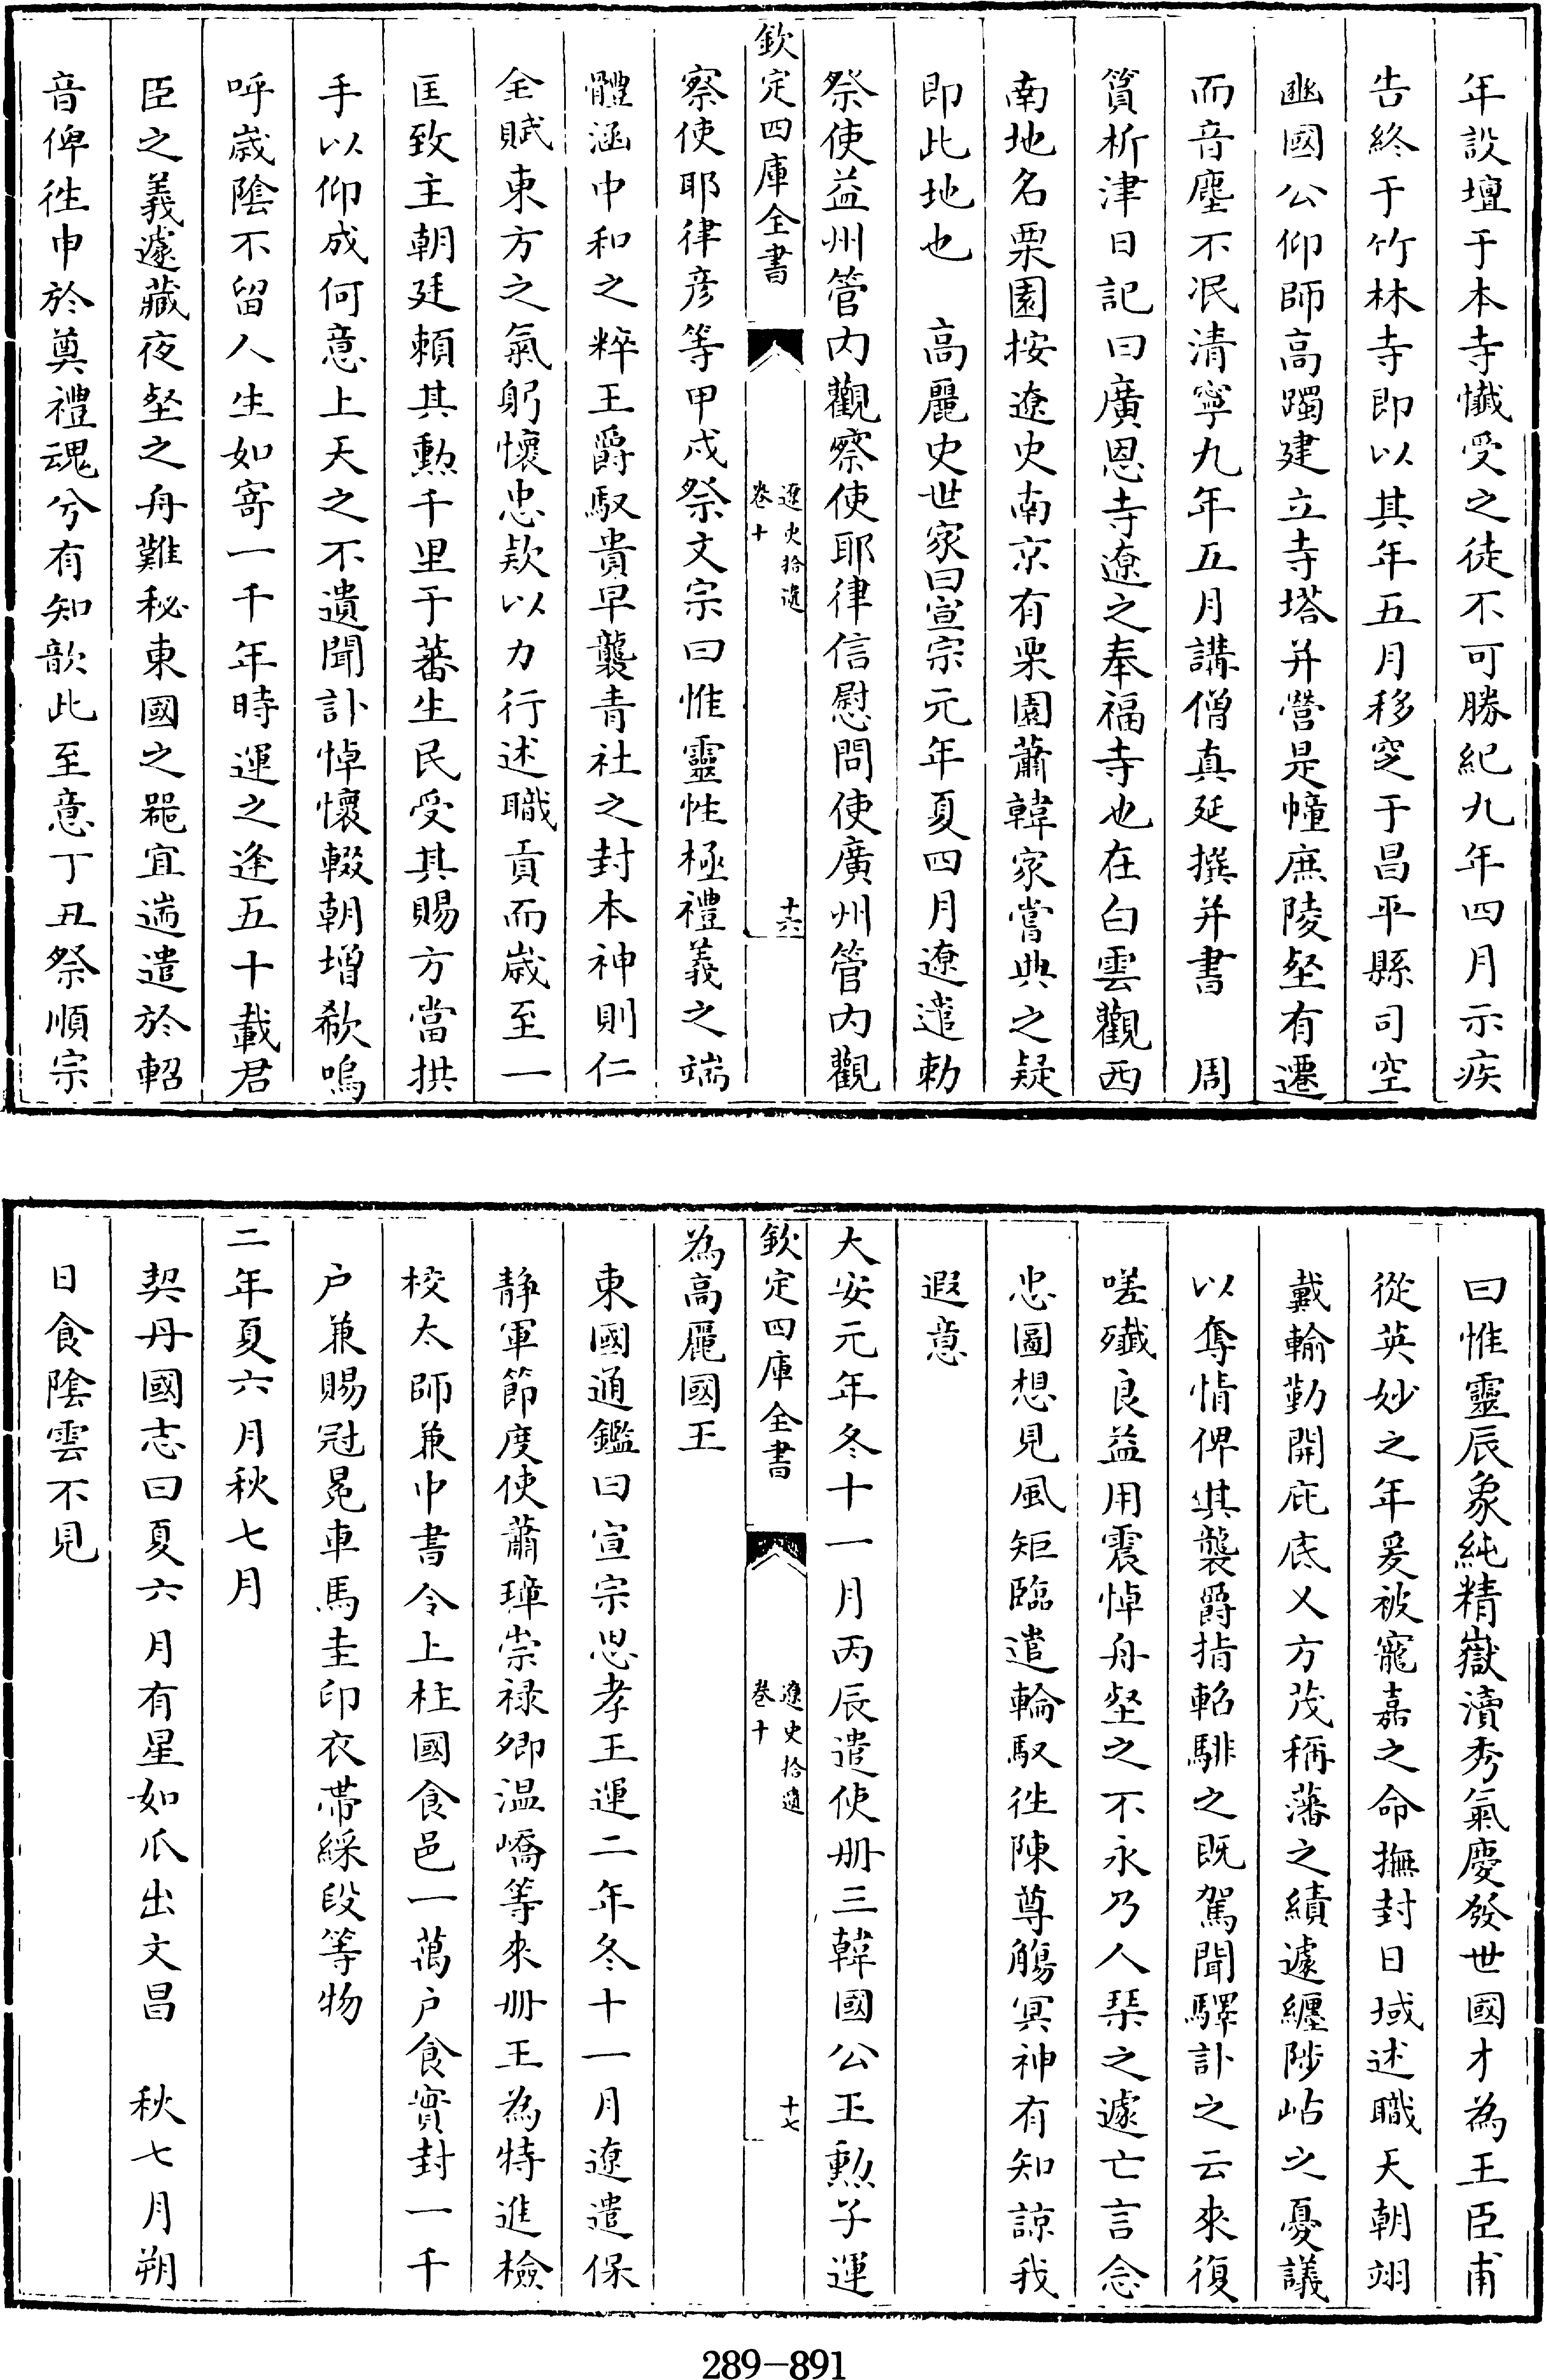 年設壇于本寺懴受之徒不可勝紀九年四月示疾
告終于竹林寺即以其年五月移窆于昌平縣司空
豳國公仰師高躅建立寺塔并營是幢庶陵壑有遷
而音塵不泯清寧九年五月講僧真延撰并書　周
篔析津日記曰廣恩寺遼之奉福寺也在白雲觀西
南地名栗園按遼史南京有栗園蕭韓家嘗典之疑
即此地也　高麗史世家曰宣宗元年夏四月遼遣勅
祭使益州管内觀察使耶律信慰問使廣州管内觀
欽定四庫全書
遼史拾遺
卷十
十六
察使耶律彦等甲戌祭文宗曰惟靈性極禮義之端
體涵中和之粹王爵馭貴早襲青社之封本神則仁
全賦東方之氣躬懷忠欵以力行述職貢而歲至一
匡致主朝廷頼其勲千里于蕃生民受其賜方當拱
手以仰成何意上天之不遺聞訃悼懷輟朝增欷嗚
呼歲陰不留人生如寄一千年時運之逢五十載君
臣之義遽藏夜壑之舟難秘東國之噐宜遄遣於軺
音俾徃申於奠禮魂兮有知歆此至意丁丑祭順宗
曰惟靈辰象純精嶽瀆秀氣慶發世國才為王臣甫
從英妙之年爰被寵嘉之命撫封日域述職天朝翊
戴輸勤開庇底乂方茂稱藩之績遽纒陟岵之憂議
以奪情俾其襲爵指軺騑之既駕聞驛訃之云來復
嗟殲良益用震悼舟壑之不永乃人琹之遽亡言念
忠圖想見風矩臨遣輪馭徃陳尊觴冥神有知諒我
遐意
大安元年冬十一月丙辰遣使册三韓國公王勲子運
欽定四庫全書
遼史拾遺
卷十
十七
為高麗國王
東國通鑑曰宣宗思孝王運二年冬十一月遼遣保
静軍節度使蕭璋崇禄卿温嶠等來册王為特進檢
校太師兼中書令上柱國食邑一萬户食實封一千
户兼賜冠冕車馬圭印衣帶綵段等物
二年夏六月秋七月
契丹國志曰夏六月有星如爪出文昌　秋七月朔
日食陰雲不見
289-891